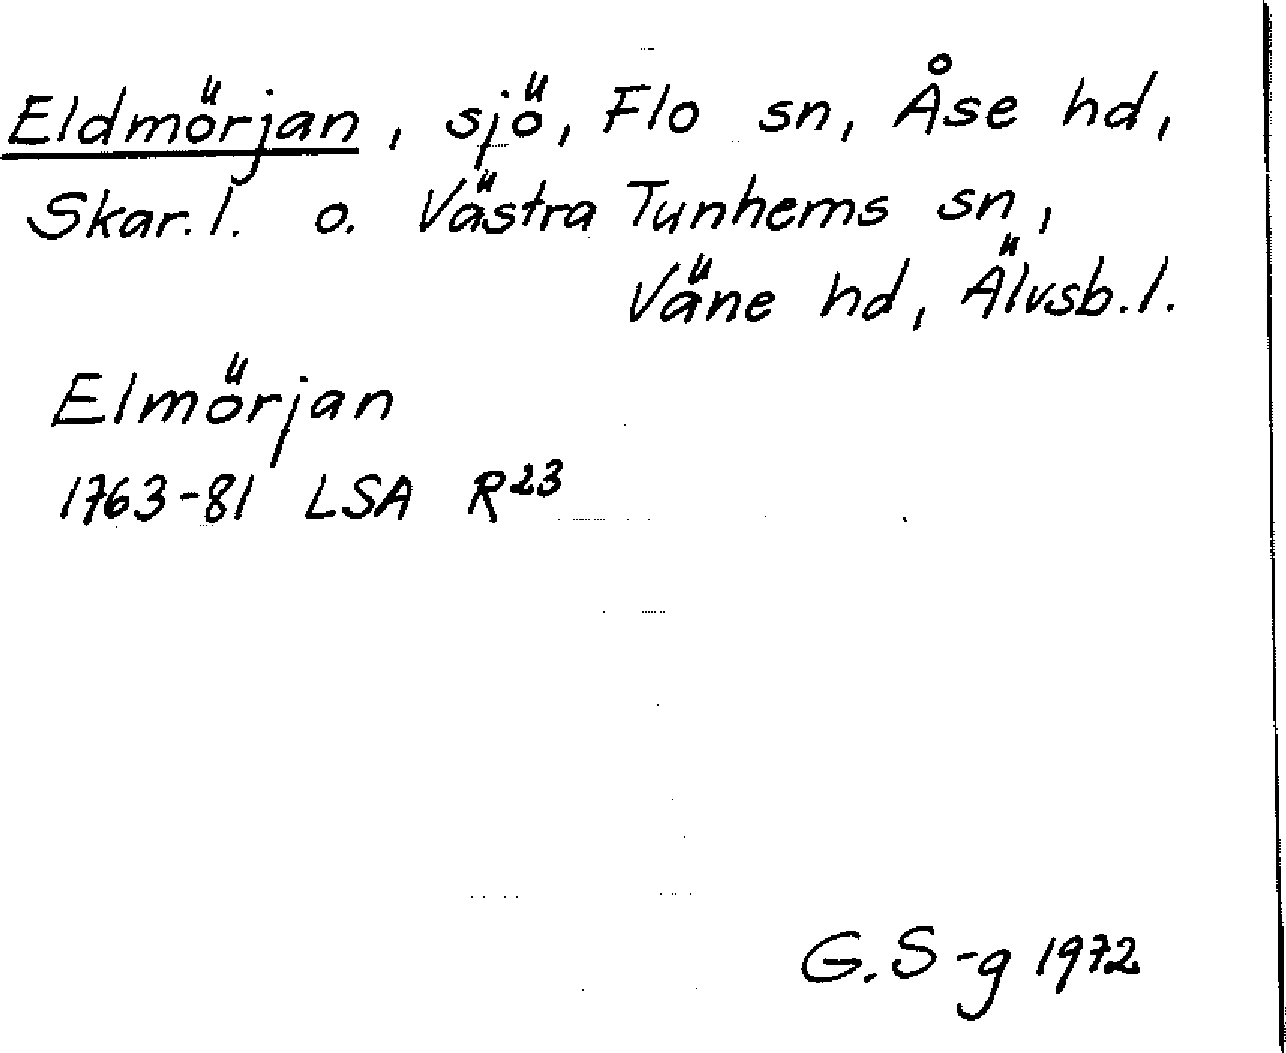 Eldmörjan, sjö, Flo sn, Åse hd,
Skar. l. o. Västra Tunhems sn,
Väne hd, Älvsb. l.
Elmörjan
1763-81 LSA R23
G. S-g 1972